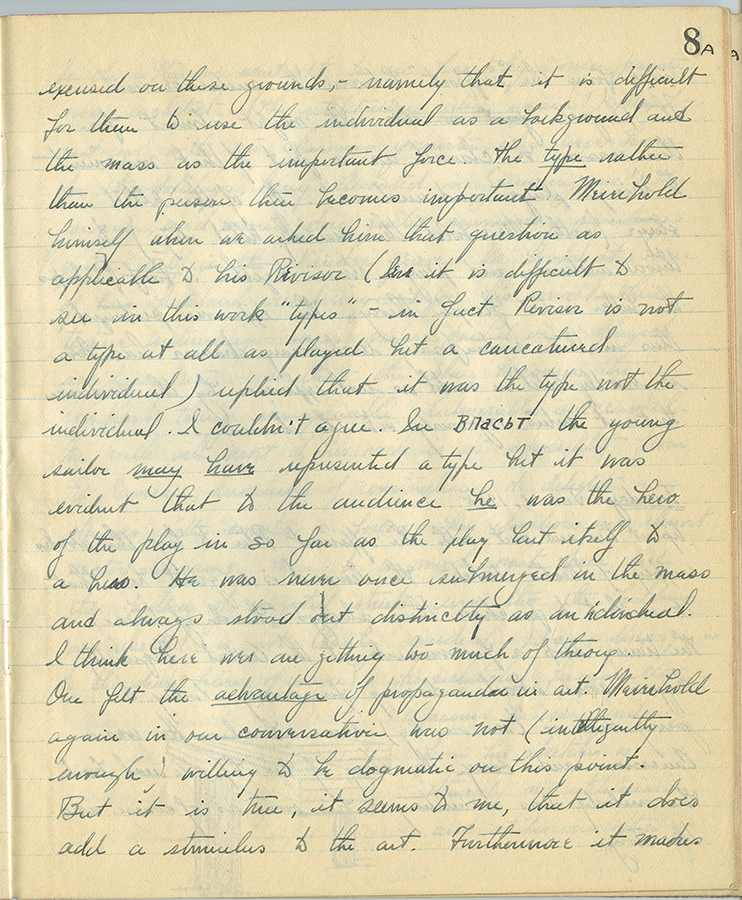 8A
excused on these grounds, - namely that it is difficult
for them to use the individual as a background and
the mass as the important force. The type rather
than the person then becomes important. Meirehold
himself when we asked him that question as
applicable to his Revisor (for it is difficult to
see in this work "types" - in fact Revisor is not
a type at all as played but a caricatured
individual) replied that it was the type not the
individual. I couldn't agree. In Впасьт the young
sailor may have represented a type but it was
evident that to the audience he was the hero
of the play in so far as the play lent itself to
a hero. He was never once submerged in the mass
and always stood out distinctly as an individual.
I think here we are getting too much of theory.
One felt the advantage of propaganda in art. Meirehold
again in our conversation was not (intelligently
enough) willing to be dogmatic on this point.
But it is true, it seems to me, that it does
add a stimulus to the art. Furthermore it makes